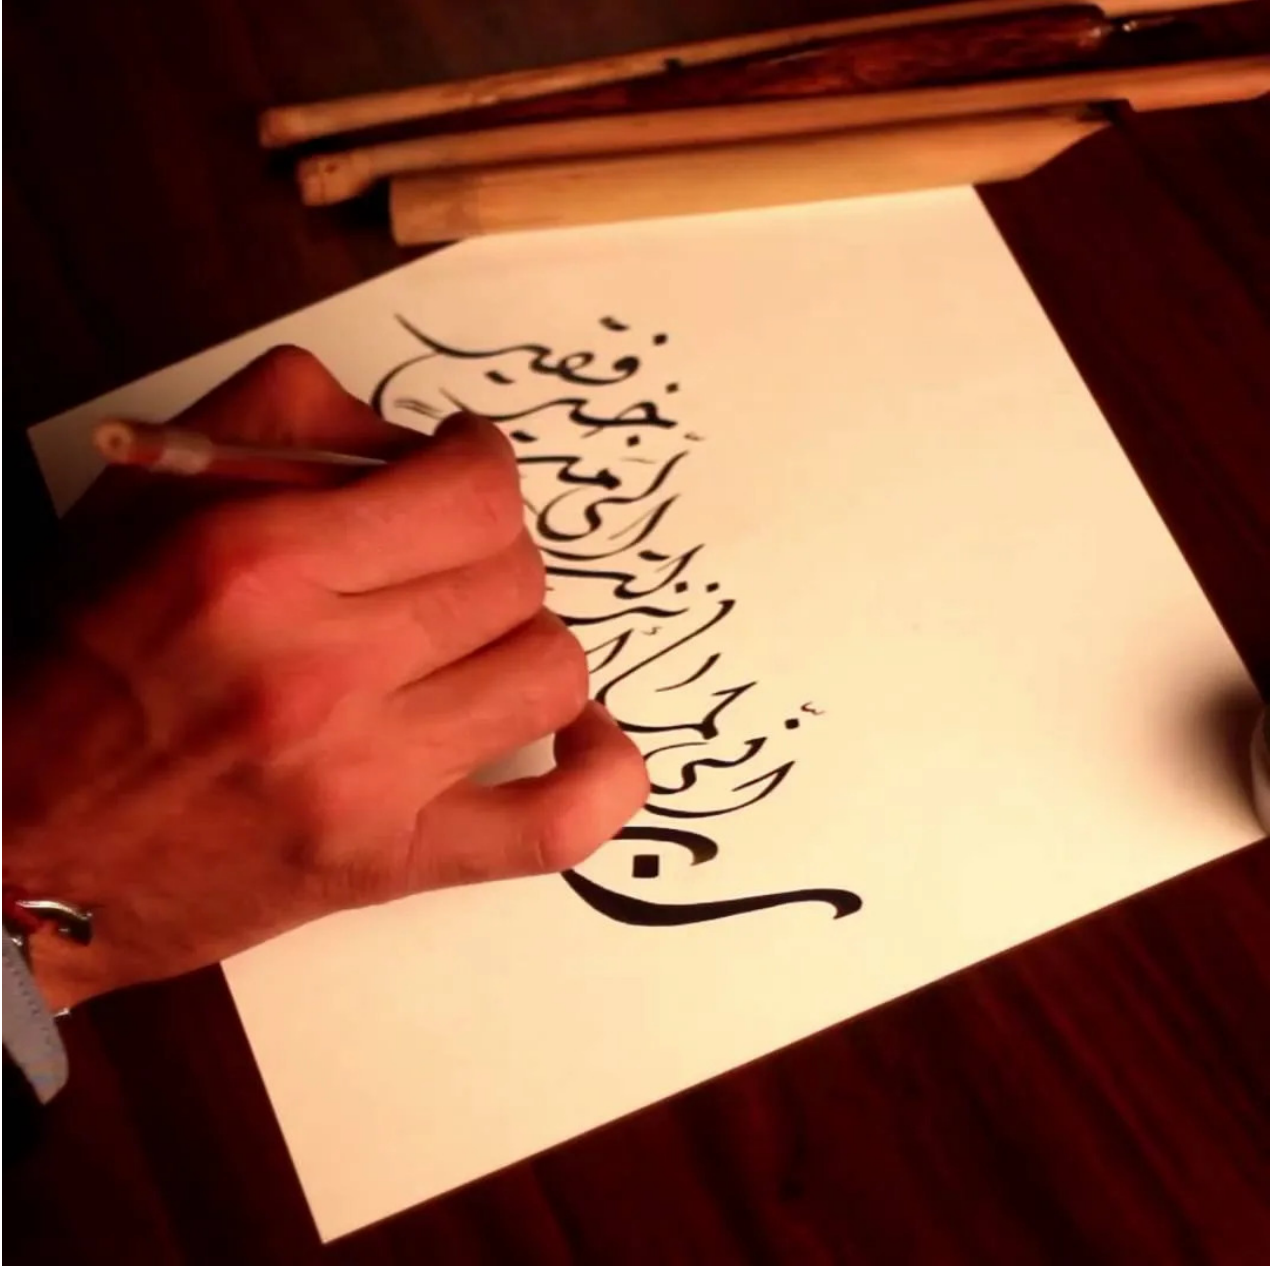 رب إني لما أنزلت إلي من خير فقير